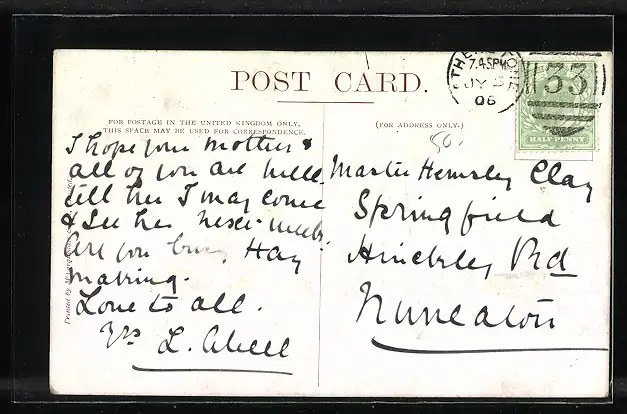 POST CARD.
FOR POSTAGE IN THE UNITED KINGDOM ONLY,
THIS SPACE MAY BE USED FOR CORRESPONDENCE.
(FOR ADDRESS ONLY.)
7.45PM
JY
06
33
HALF PENNY
80.
I hope your mother &
all of you are well.
tell her I may come
& see her next week.
Are you busy Hay
making.
Love to all.
Yrs
L. Abell
Master Hemsley Clay
Springfield
Hinckley Rd
Nuneaton
Printed by